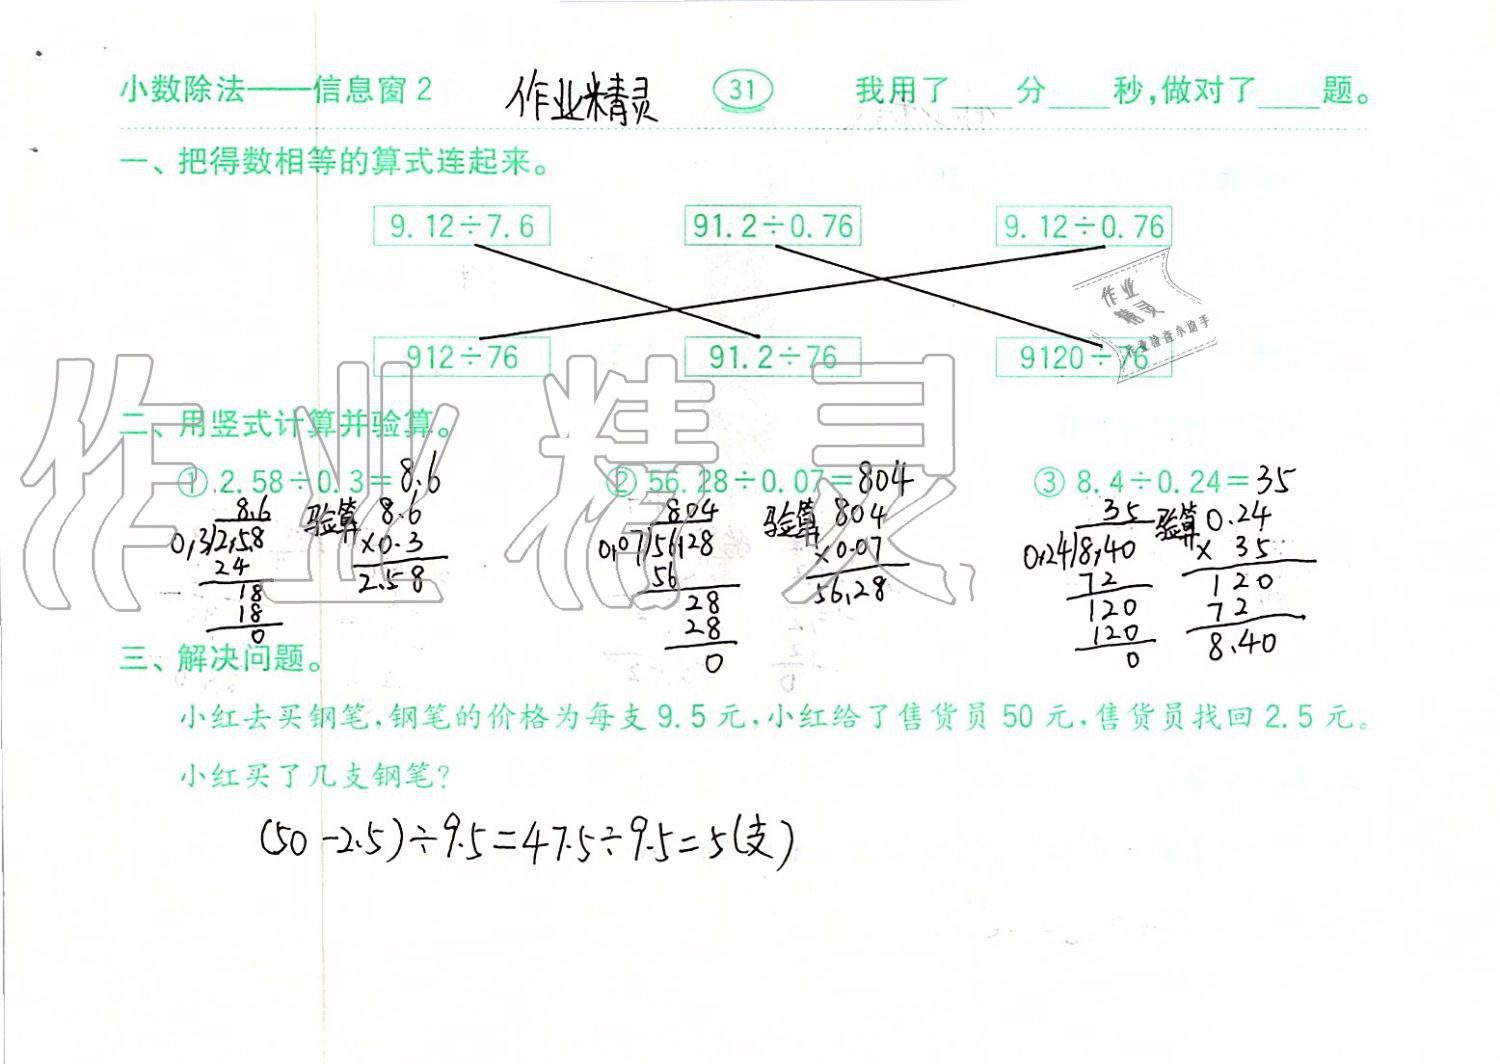 小数除法——信息窗2 作业精灵 31 我用了____分____秒,做对了____题。
一、把得数相等的算式连起来。
9.12÷7.6 91.2÷0.76 9.12÷0.76
作业
精灵
作业检查小助手
912÷76 91.2÷76 9120÷76
作业精灵
二、用竖式计算并验算。
①2.58÷0.3=8.6 ②56.28÷0.07=804 ③8.4÷0.24=35
8.6 验算 8.6 804 验算 804 35 验算 0.24
0.3 2.58 ×0.3 0.07 56.28 ×0.07 0.24 8.40 × 35
24 2.58 56 56.28 72 120
18 28 120 72
18 28 120 8.40
0 0 0
三、解决问题。
小红去买钢笔,钢笔的价格为每支9.5元,小红给了售货员50元,售货员找回2.5元。
小红买了几支钢笔?
(50-2.5)÷9.5=47.5÷9.5=5(支)